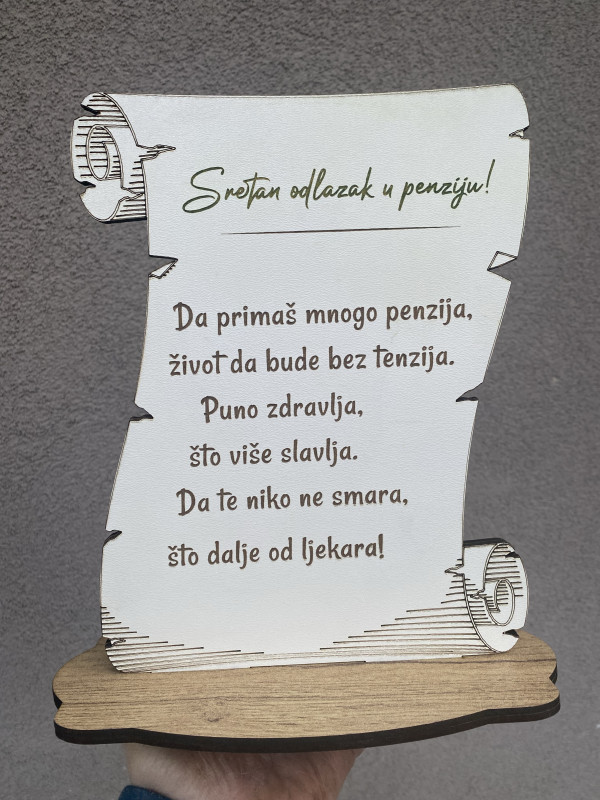 Sretan odlazak u penziju!
Da primaš mnogo penzija,
život da bude bez tenzija.
Puno zdravlja,
što više slavlja.
Da te niko ne smara,
što dalje od ljekara!